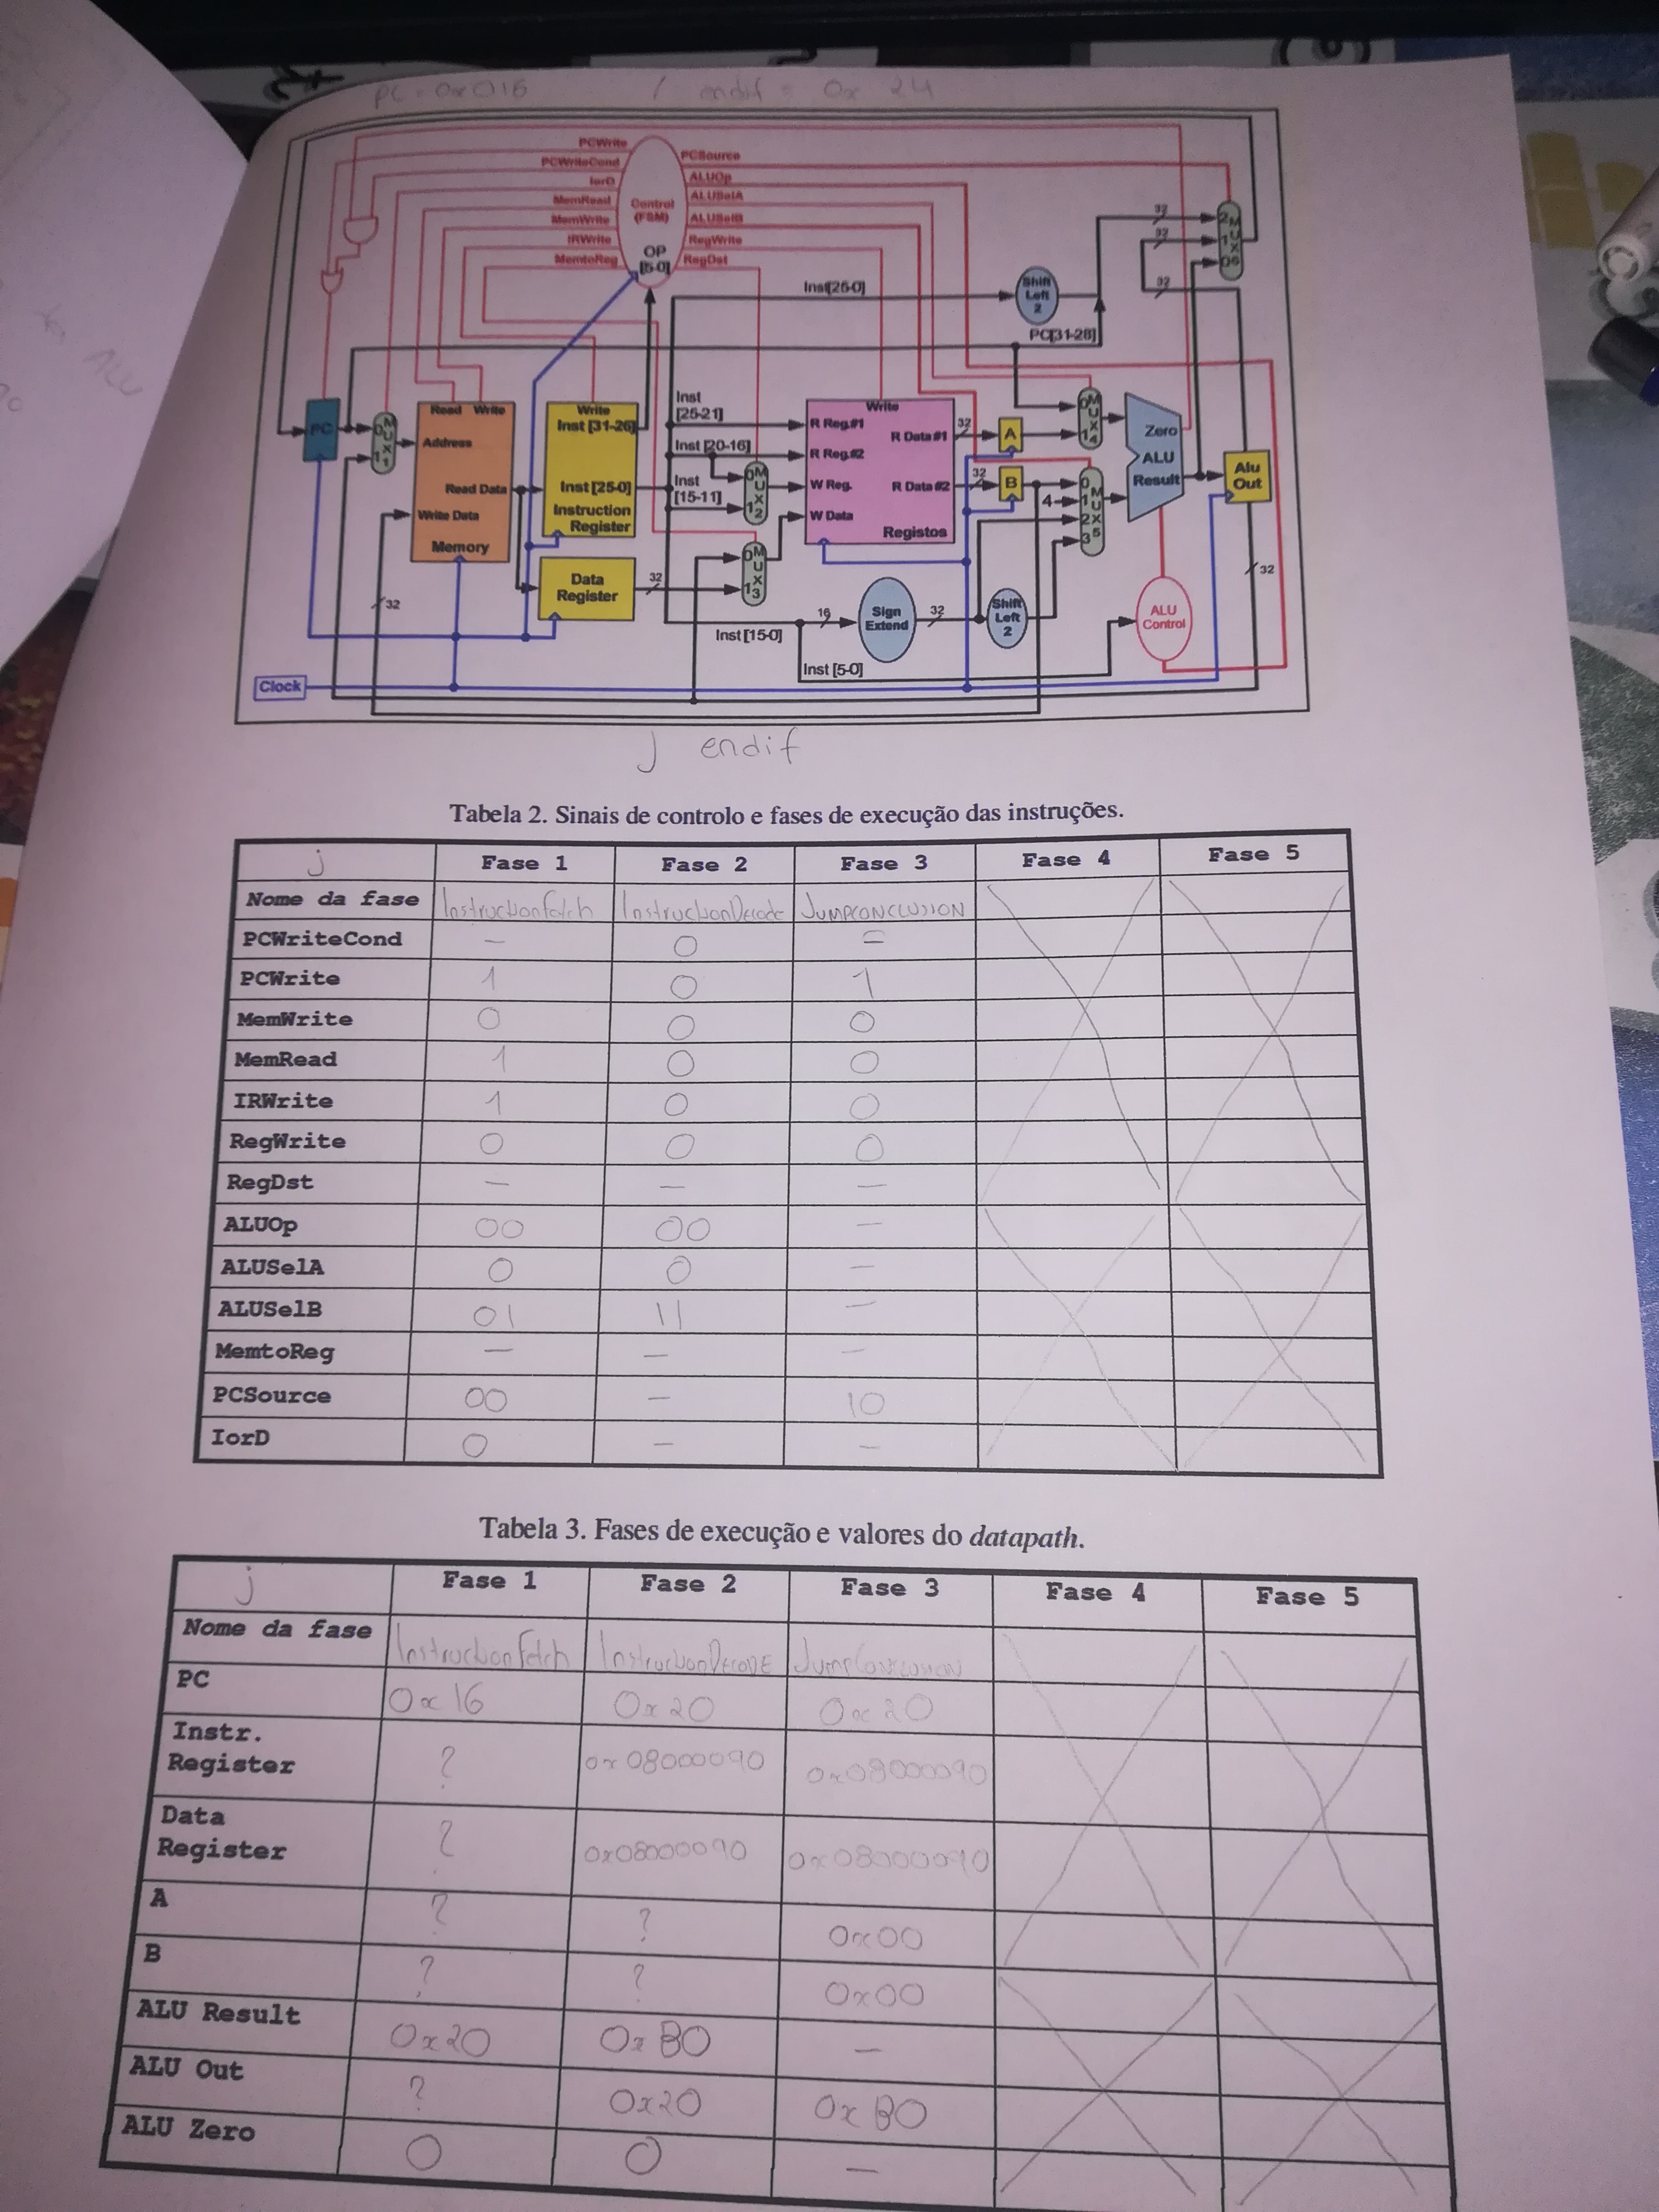 PC = 0x016 / endif = 0x 24
PCWrite
PCWriteCond
IorD
MemRead
MemWrite
IRWrite
MemtoReg
Control
(FSM)
OP
[5-0]
PCSource
ALUOp
ALUSelA
ALUSelB
RegWrite
RegDst
Inst[25-0]
Shift
Left
2
PC[31-28]
32
32
32
2
1
0
M
U
X
6
PC
0
1
M
U
X
1
Read Write
Address
Read Data
Write Data
Memory
Write
Inst [31-26]
Inst [25-0]
Instruction
Register
Data
Register
32
Inst
[25-21]
Inst [20-16]
Inst
[15-11]
0
1
M
U
X
2
0
1
M
U
X
3
Write
R Reg.#1
R Reg.#2
W Reg.
W Data
R Data#1
R Data#2
Registos
32
32
A
B
4
0
1
M
U
X
4
0
1
2
3
M
U
X
5
Zero
ALU
Result
Alu
Out
32
ALU
Control
16
Sign
Extend
32
Shift
Left
2
Inst [15-0]
Inst [5-0]
32
Clock
j endif
Tabela 2. Sinais de controlo e fases de execução das instruções.
j Fase 1 Fase 2 Fase 3 Fase 4 Fase 5
Nome da fase InstructionFetch InstructionDecode JUMPCONCLUSION
PCWriteCond – 0 =
PCWrite 1 0 1
MemWrite 0 0 0
MemRead 1 0 0
IRWrite 1 0 0
RegWrite 0 0 0
RegDst – – –
ALUOp 00 00 –
ALUSelA 0 0 –
ALUSelB 01 11 –
MemtoReg – – –
PCSource 00 – 10
IorD 0 – –
Tabela 3. Fases de execução e valores do datapath.
j Fase 1 Fase 2 Fase 3 Fase 4 Fase 5
Nome da fase InstructionFetch InstructionDECODE JumpConclusion
PC 0x16 0x20 0x20
Instr.
Register ? 0x08000090 0x08000090
Data
Register ? 0x08000090 0x08000090
A ? ? 0x00
B ? ? 0x00
ALU Result 0x20 0xB0 –
ALU Out ? 0x20 0xB0
ALU Zero 0 0 –
ALU